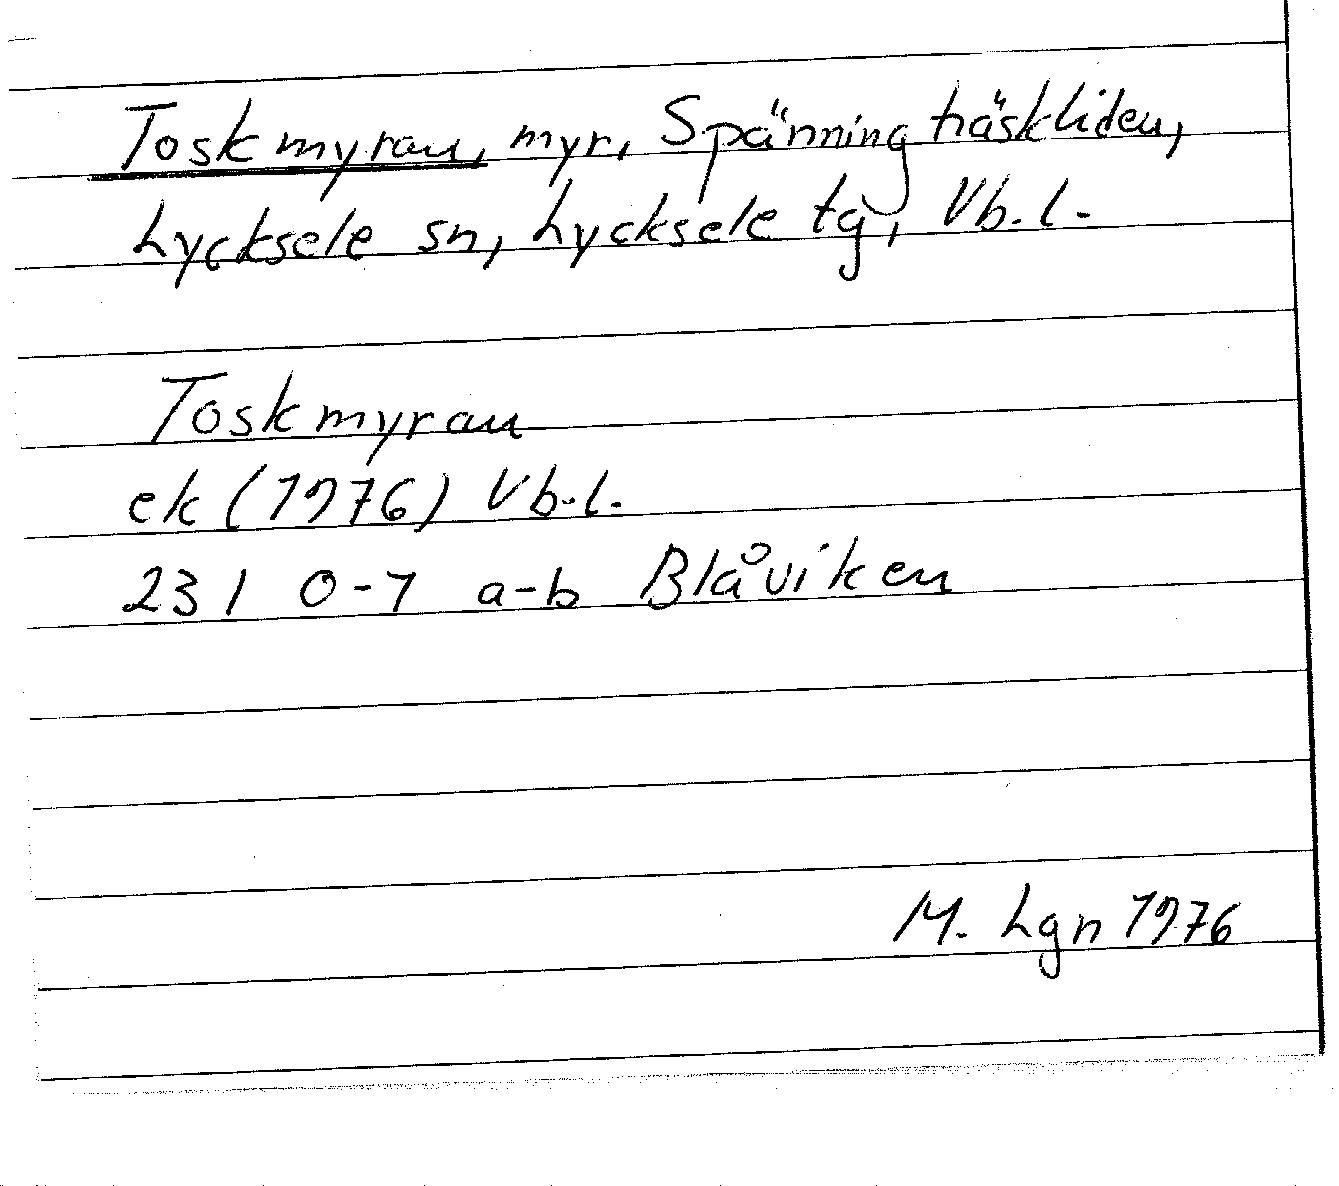 Toskmyran, myr, Spänningträskliden,
Lycksele sn, Lycksele tg, Vb.l.
Toskmyran
ek (1976) Vb.l.
23 I 0-1 a-b Blåviken
M. Lgn 1976